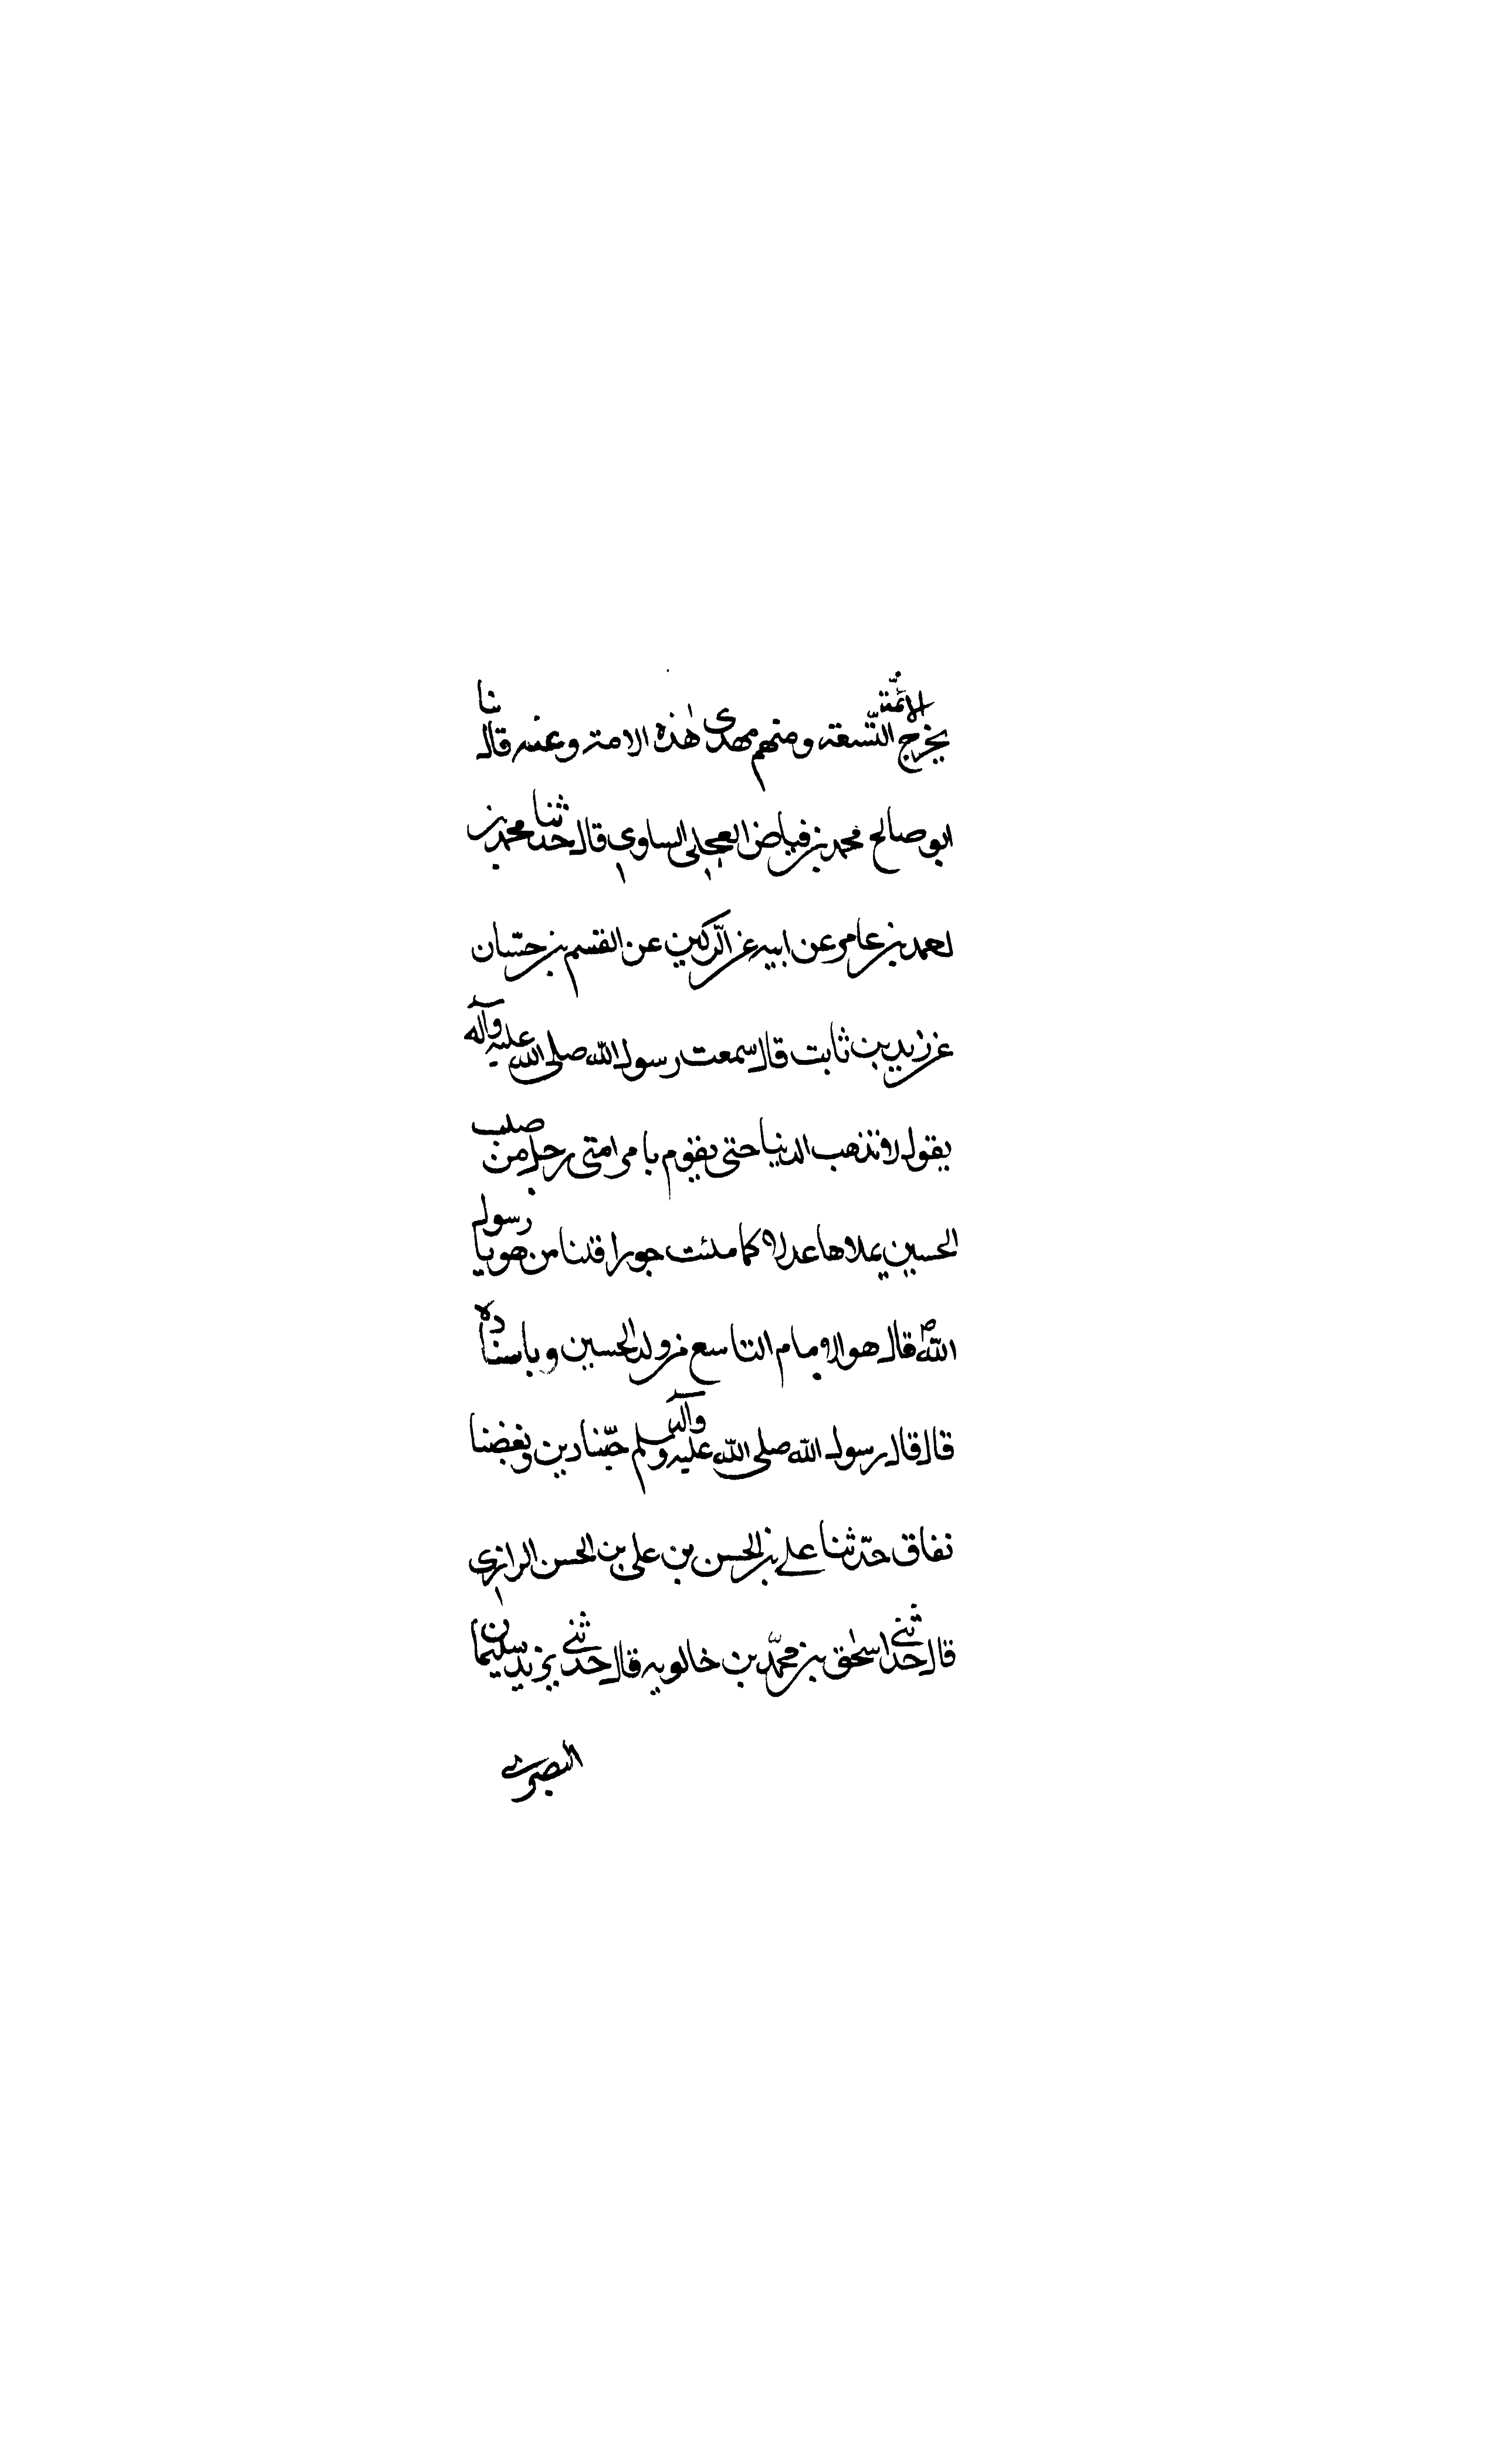 يخرج الائمّة التّسعة ومنهم مهدى هٰذه الامة وعنه قال ثنا
ابو صالح محمد بن فياض العجلى الساوى قال حدثنا محمد بن
احمد بن عامر عن ابيه عن الرّكين عن القسم بن حسّان
عن زيد بن ثابت قال سمعت رسول الله صلى الله عليه وآله
يقول لا تذهب الدنيا حتى يقوم بامر امتى رجل من صلب
الحسين يملاها عدلا كما ملئت جورا قلنا من هو يا رسول
الله ص قال هو الامام التاسع من ولد الحسين وباسناده
قال قال رسول الله صلى الله عليه وآله وسلم حبّنا دين وبغضنا
نفاق حدّثنا على بن الحسن بن على بن الحسن الرازى
قال حدثنى اسحٰق بن محمّد بن خالويه قال حدثنى يزيد سليمان
البصرى